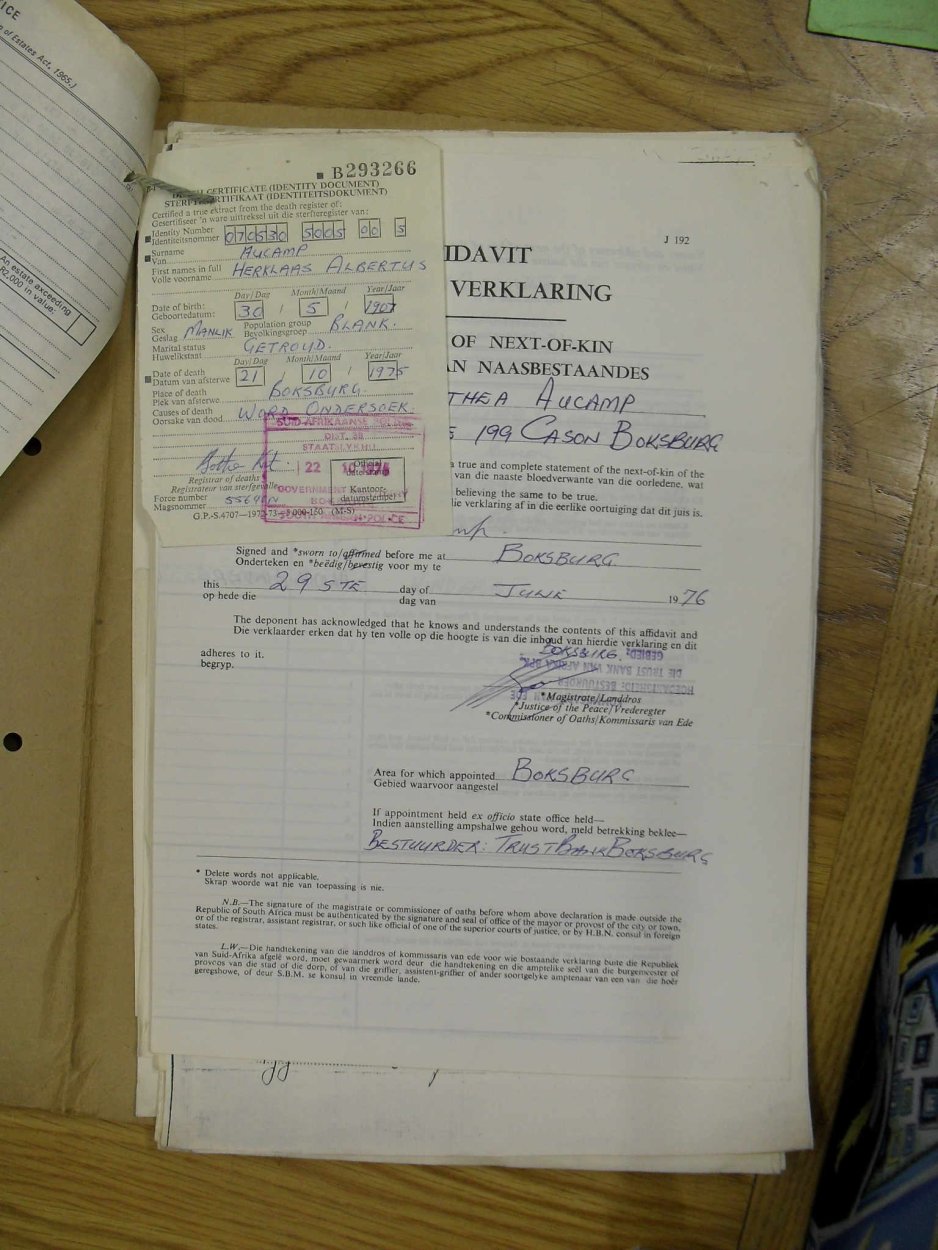 ICE
of Estates Act, 1965.)
An estate exceeding
R2,000 in value:
B293266
DEATH CERTIFICATE (IDENTITY DOCUMENT)
STERFTESERTIFIKAAT (IDENTITEITSDOKUMENT)
Certified a true extract from the death register of:
Gesertifiseer 'n ware uittreksel uit die sterfteregister van:
Identity Number
Identiteitsnommer 070530 5005 00 5
Surname
Van AUCAMP
First names in full
Volle voorname HERKLAAS ALBERTUS
Day/Dag Month/Maand Year/Jaar
Date of birth:
Geboortedatum: 30 / 5 / 1907
Sex
Geslag MANLIK Population group
Bevolkingsgroep BLANK.
Marital status
Huwelikstaat GETROUD.
Day/Dag Month/Maand Year/Jaar
Date of death
Datum van afsterwe 21 / 10 / 1975
Place of death
Plek van afsterwe BOKSBURG
Causes of death
Oorsake van dood WORD ONDERSOEK.
SUID-AFRIKAANSE
DIST. 88
22 10
Registrar of deaths
Registrateur van sterfgevalle
Official
Kantoor-
datumstempel
GOVERNMENT
Force number
Magsnommer
SOUTH AFRICAN POLICE
G.P.-S.4707—1972-73—(M-S)
J 192
IDAVIT
VERKLARING
OF NEXT-OF-KIN
AN NAASBESTAANDES
THEA AUCAMP
199 CASON BOKSBURG
a true and complete statement of the next-of-kin of the
van die naaste bloedverwante van die oorledene, wat
believing the same to be true.
lie verklaring af in die eerlike oortuiging dat dit juis is.
Signed and *sworn to/affirmed before me at
Onderteken en *beëdig/bevestig voor my te BOKSBURG
this
op hede die 29 STE day of
dag van JUNE 19 76
The deponent has acknowledged that he knows and understands the contents of this affidavit and
Die verklaarder erken dat hy ten volle op die hoogte is van die inhoud van hierdie verklaring en dit
adheres to it.
begryp.
BOKSBURG
GEBIED:
DIE TRUST BANK VAN AFRIKA BPK.
HOEDANIGHEID: BESTUURDER
*Magistrate/Landdros
*Justice of the Peace/Vrederegter
*Commissioner of Oaths/Kommissaris van Ede
Area for which appointed
Gebied waarvoor aangestel BOKSBURG
If appointment held ex officio state office held—
Indien aanstelling ampshalwe gehou word, meld betrekking beklee—
BESTUURDER: TRUSTBANK BOKSBURG
* Delete words not applicable.
Skrap woorde wat nie van toepassing is nie.
N.B.—The signature of the magistrate or commissioner of oaths before whom above declaration is made outside the
Republic of South Africa must be authenticated by the signature and seal of office of the mayor or provost of the city or town,
or of the registrar, assistant registrar, or such like official of one of the superior courts of justice, or by H.B.N. consul in foreign
states.
L.W.—Die handtekening van die landdros of kommissaris van ede voor wie bostaande verklaring buite die Republiek
van Suid-Afrika afgelê word, moet gewaarmerk word deur die handtekening en die amptelike seël van die burgemeester of
provoos van die stad of die dorp, of van die griffier, assistent-griffier of ander soortgelyke amptenaar van een van die hoër
geregshowe, of deur S.B.M. se konsul in vreemde lande.